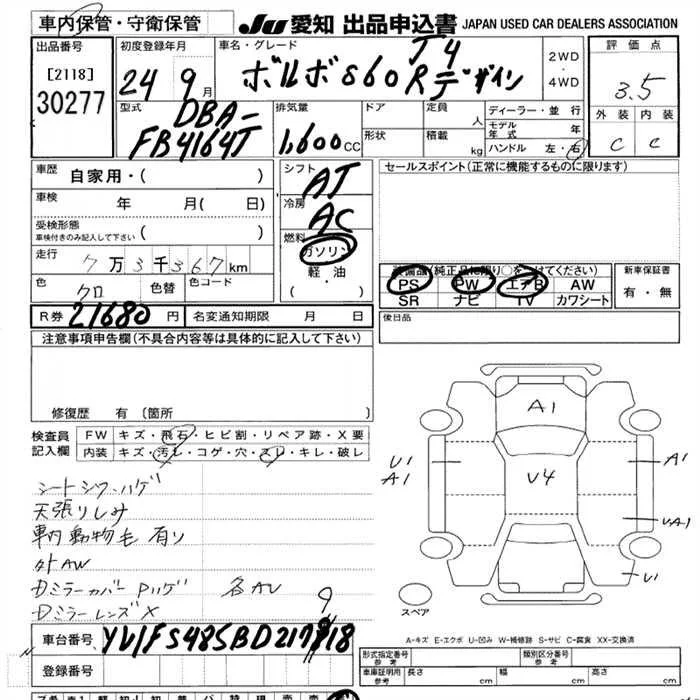 車内保管・守衛保管
JU 愛知 出品申込書 JAPAN USED CAR DEALERS ASSOCIATION
出品番号 [2118] 30277
初度登録年月 24 9月
車名・グレード J4 ボルボS60Rデザイン
2WD・4WD
評価点 3.5
外装 内装
C C
型式 DBA-FB4164T
排気量 1,600CC
ドア
形状
定員 人
積載 kg
ディーラー・並行
モデル年式 年
ハンドル 左・右
車歴 自家用・( )
車検 年 月( 日)
受検形態
車検付きのみ記入して下さい ( )
走行 7万3千367km
色 クロ 色替 色コード
シフト AT
冷房 AC
燃料 ガソリン
軽・油
( ・ )
セールスポイント(正常に機能するものに限ります)
装備品(純正品に限り○をつけてください)
PS PW エアB AW
SR ナビ TV カワシート
新車保証書
有・無
R券 21680円 名変通知期限 月 日
後日品
注意事項申告欄(不具合内容等は具体的に記入して下さい)
修復歴 有 〔箇所 〕
検査員記入欄
FW キズ・飛石・ヒビ割・リペア跡・X要
内装 キズ・汚レ・コゲ・穴・スレ・キレ・破レ
シートシワ・ハゲ
天張りしみ
車内動物毛有り
外AW
DミラーカバーPハゲ 各AU
DミラーレンズX
A1
U1
A1
V4
A1
UA1
U1
スペア
A-キズ E-エクボ U-凹み W-補修跡 S-サビ C-腐食 XX-交換済
車台番号 YV1FS48SBD2179918
9
登録番号
形式指定番号 参考
類別区分番号 参考
車庫証明用 参考 長さ cm 幅 cm 高さ cm